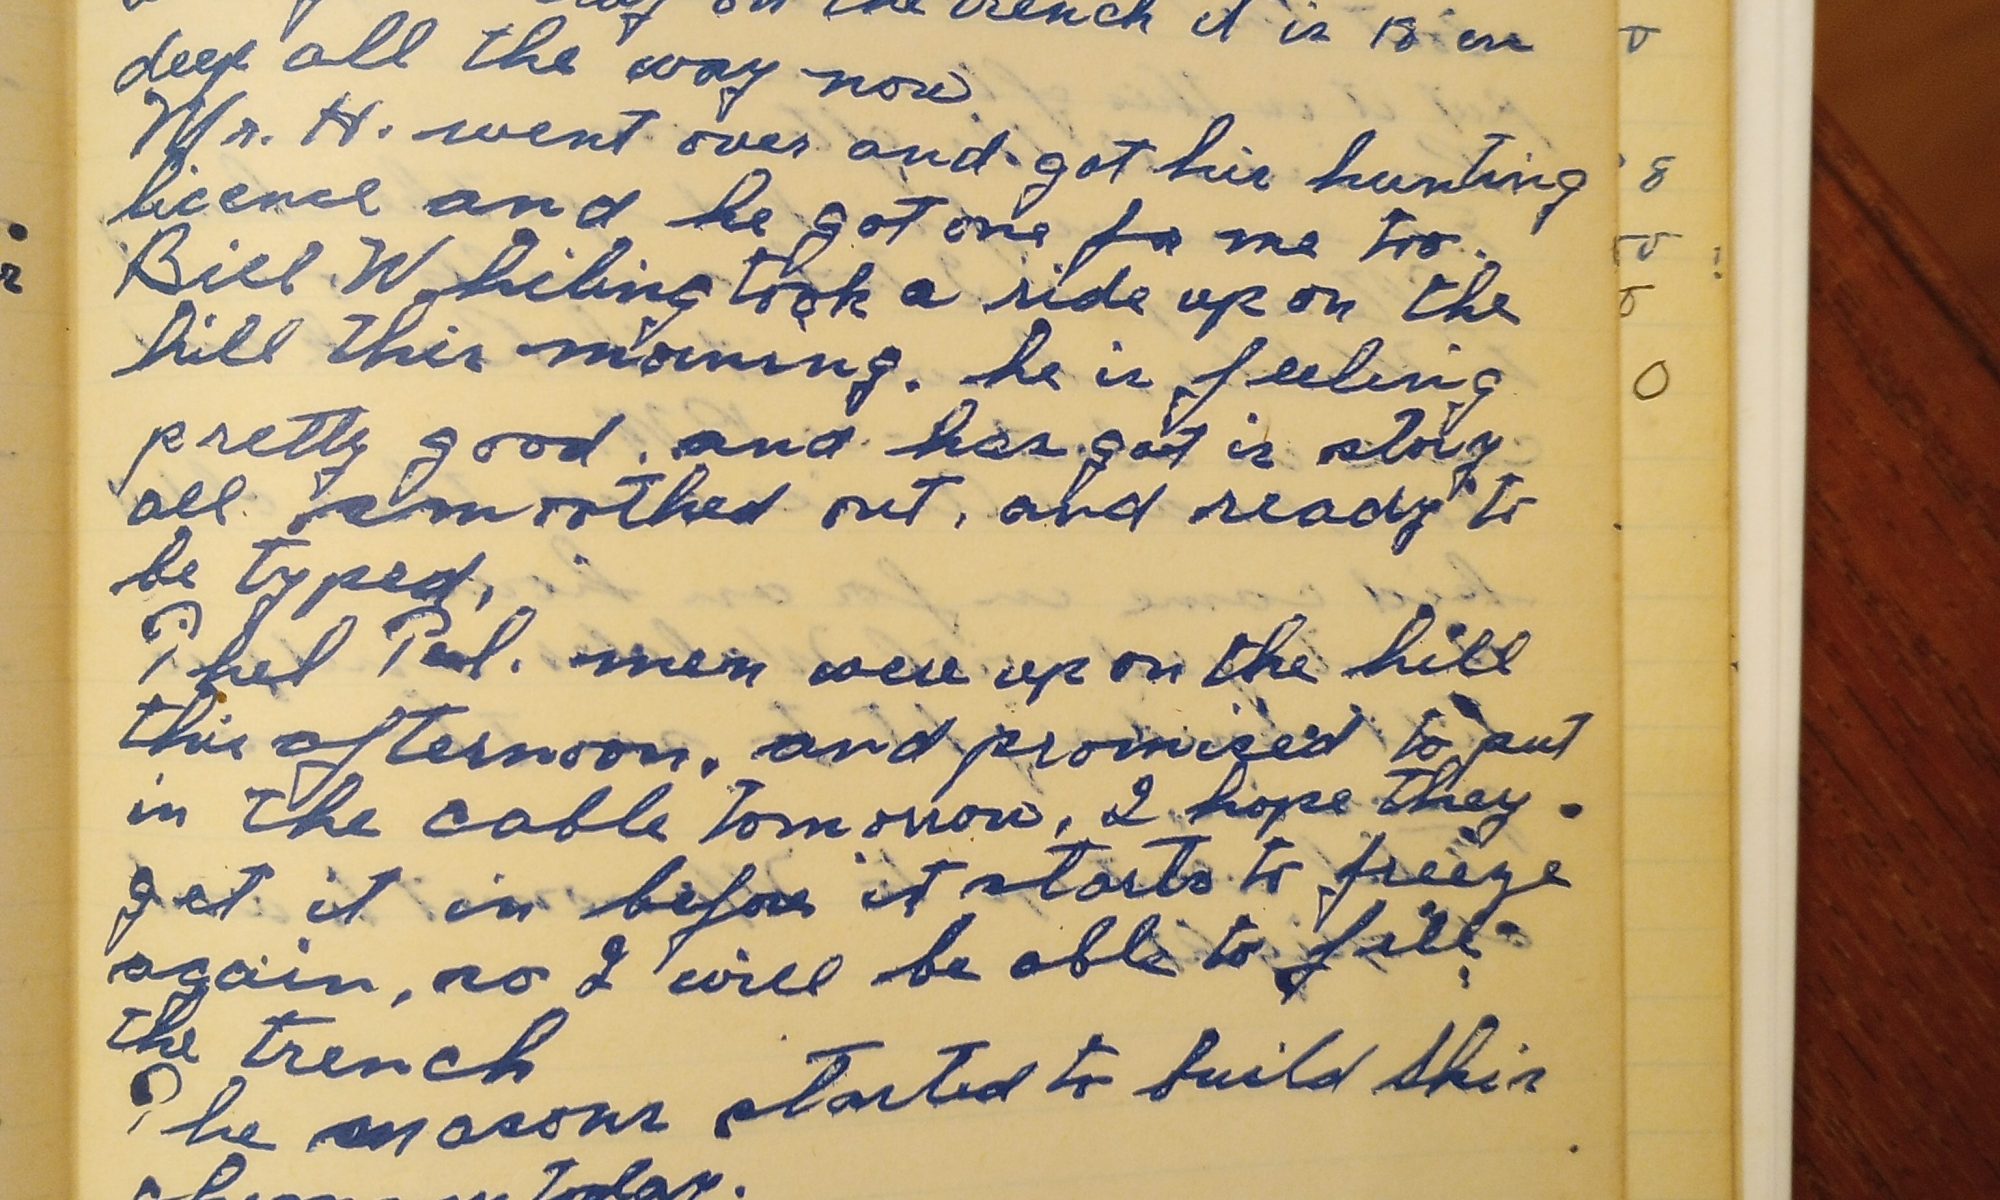 on the trench it is 18 in
deep all the way now
Mr. H. went over and got his hunting
licence and he got one for me too.
Bill Whiling took a ride up on the
hill this morning. he is feeling
pretty good, and has got is story
all smoothed out, and ready to
be typed,
Tel. men were up on the hill
this afternoon, and promised to put
in the cable tomorrow, I hope they
get it in before it starts to freeze
again, so I will be able to fill
the trench
The masons started to build this
today.